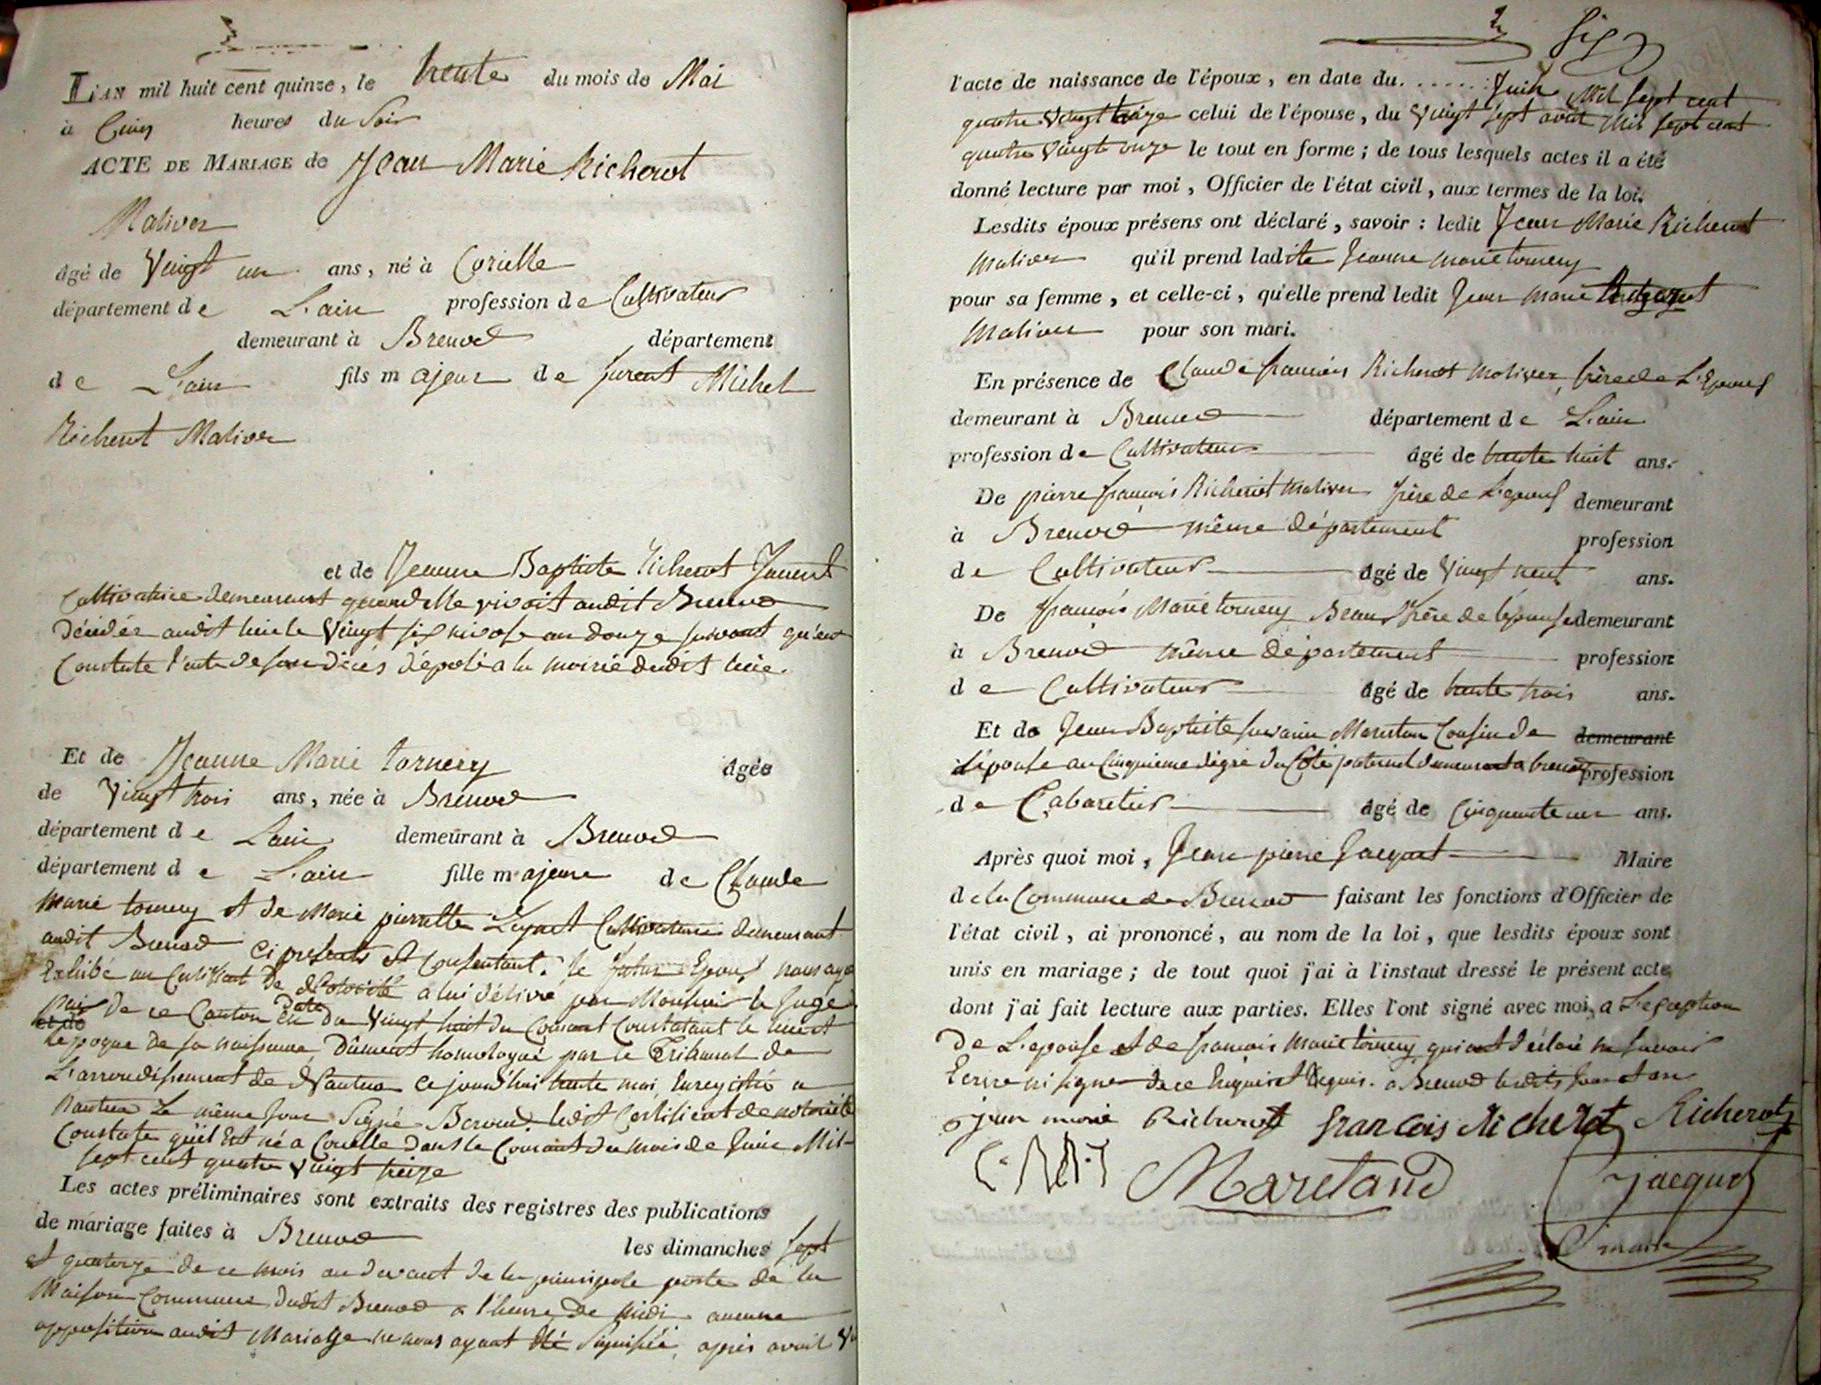 L'AN mil huit cent quinze, le trente du mois de Mai
à Cinq heures du Soir
ACTE DE MARIAGE de Jean Marie Richerot
Maliver
âgé de Vingt un ans, né à Corcelle
département de L'ain profession de Cultivateur
demeurant à Brenod département
de L'ain fils majeur de Michel
Richerot Maliver
et de Jeanne Baptiste Richerot
Cultivatrice demeurant quand elle vivoit audit Brenod
Décédée audit lieu le Vingt six nivose an douze suivant qu'en
Constate l'acte de son Décès déposé a la mairie dudit lieu.
Et de Jeanne Marie tornery âgée
de Vingt trois ans, née à Brenod
département de L'ain demeurant à Brenod
département de L'ain fille majeure de Claude
Marie tornery et de Marie pierrette Cultivateurs demeurant
audit Brenod ci presents et Consentant. le futur Epoux nous aya
Exhibé un Certificat de Notoriété a lui délivré par Monsieur le Juge
paix de ce Canton en Date du Vingt huit du Courant Constatant le lieu et
l'epoque de sa naissance, Dûment homologué par le Tribunal de
L'arrondissement de Nantua ce jourd'hui trente mai, Enregistré a
Nantua Le même Jour Signé ledit Certificat de notoriété
Constate qu'il Est né a Corcelle dans le Courant du mois de Juin Mil
sept cent quatre Vingt treize
Les actes préliminaires sont extraits des registres des publications
de mariage faites à Brenod les dimanches sept
et quatorze de ce mois au devant de la principale porte de la
Maison Commune dudit Brenod a l'heure de midi aucune
opposition audit Mariage ne nous ayant été Signifiée, après avoir Vu
six
l'acte de naissance de l'époux, en date du...... Juin Mil sept cent
quatre Vingt treize celui de l'épouse, du Vingt sept avril Mil sept cent
quatre Vingt onze le tout en forme ; de tous lesquels actes il a été
donné lecture par moi, Officier de l'état civil, aux termes de la loi.
Lesdits époux présens ont déclaré, savoir : ledit Jean Marie Richerot
Maliver qu'il prend ladite Jeanne Marie tornery
pour sa femme, et celle-ci, qu'elle prend ledit Jean Marie Richerot
Maliver pour son mari.
En présence de Claude françois Richerot Maliver, frère de L'Epoux
demeurant à Brenod département de L'ain
profession de Cultivateur âgé de trente huit ans.
De pierre françois Richerot Maliver frère de L'epoux demeurant
à Brenod même département profession
de Cultivateur âgé de Vingt neuf ans.
De françois Marie tornery Beau frère de l'épouse demeurant
à Brenod même département profession
de Cultivateur âgé de trente trois ans.
Et de Jean Baptiste Maretan Cousin de demeurant
l'épouse au Cinquième dégré du Côté paternel demeurant a brenod profession
de Cabaretier âgé de Cinquante un ans.
Après quoi moi, Jean pierre Jacquet Maire
de la Commune de Brenod faisant les fonctions d'Officier de
l'état civil, ai prononcé, au nom de la loi, que lesdits époux sont
unis en mariage ; de tout quoi j'ai à l'instant dressé le présent acte,
dont j'ai fait lecture aux parties. Elles l'ont signé avec moi, a L'exception
De L'epouse et de françois Marie tornery qui ont déclaré ne Savoir
Ecrire ni signer de ce Enquis et Requis. a Brenod lesdits Jour et an
jean marie Richerot francois Richerot Richerot
Maretand Jacquet
maire